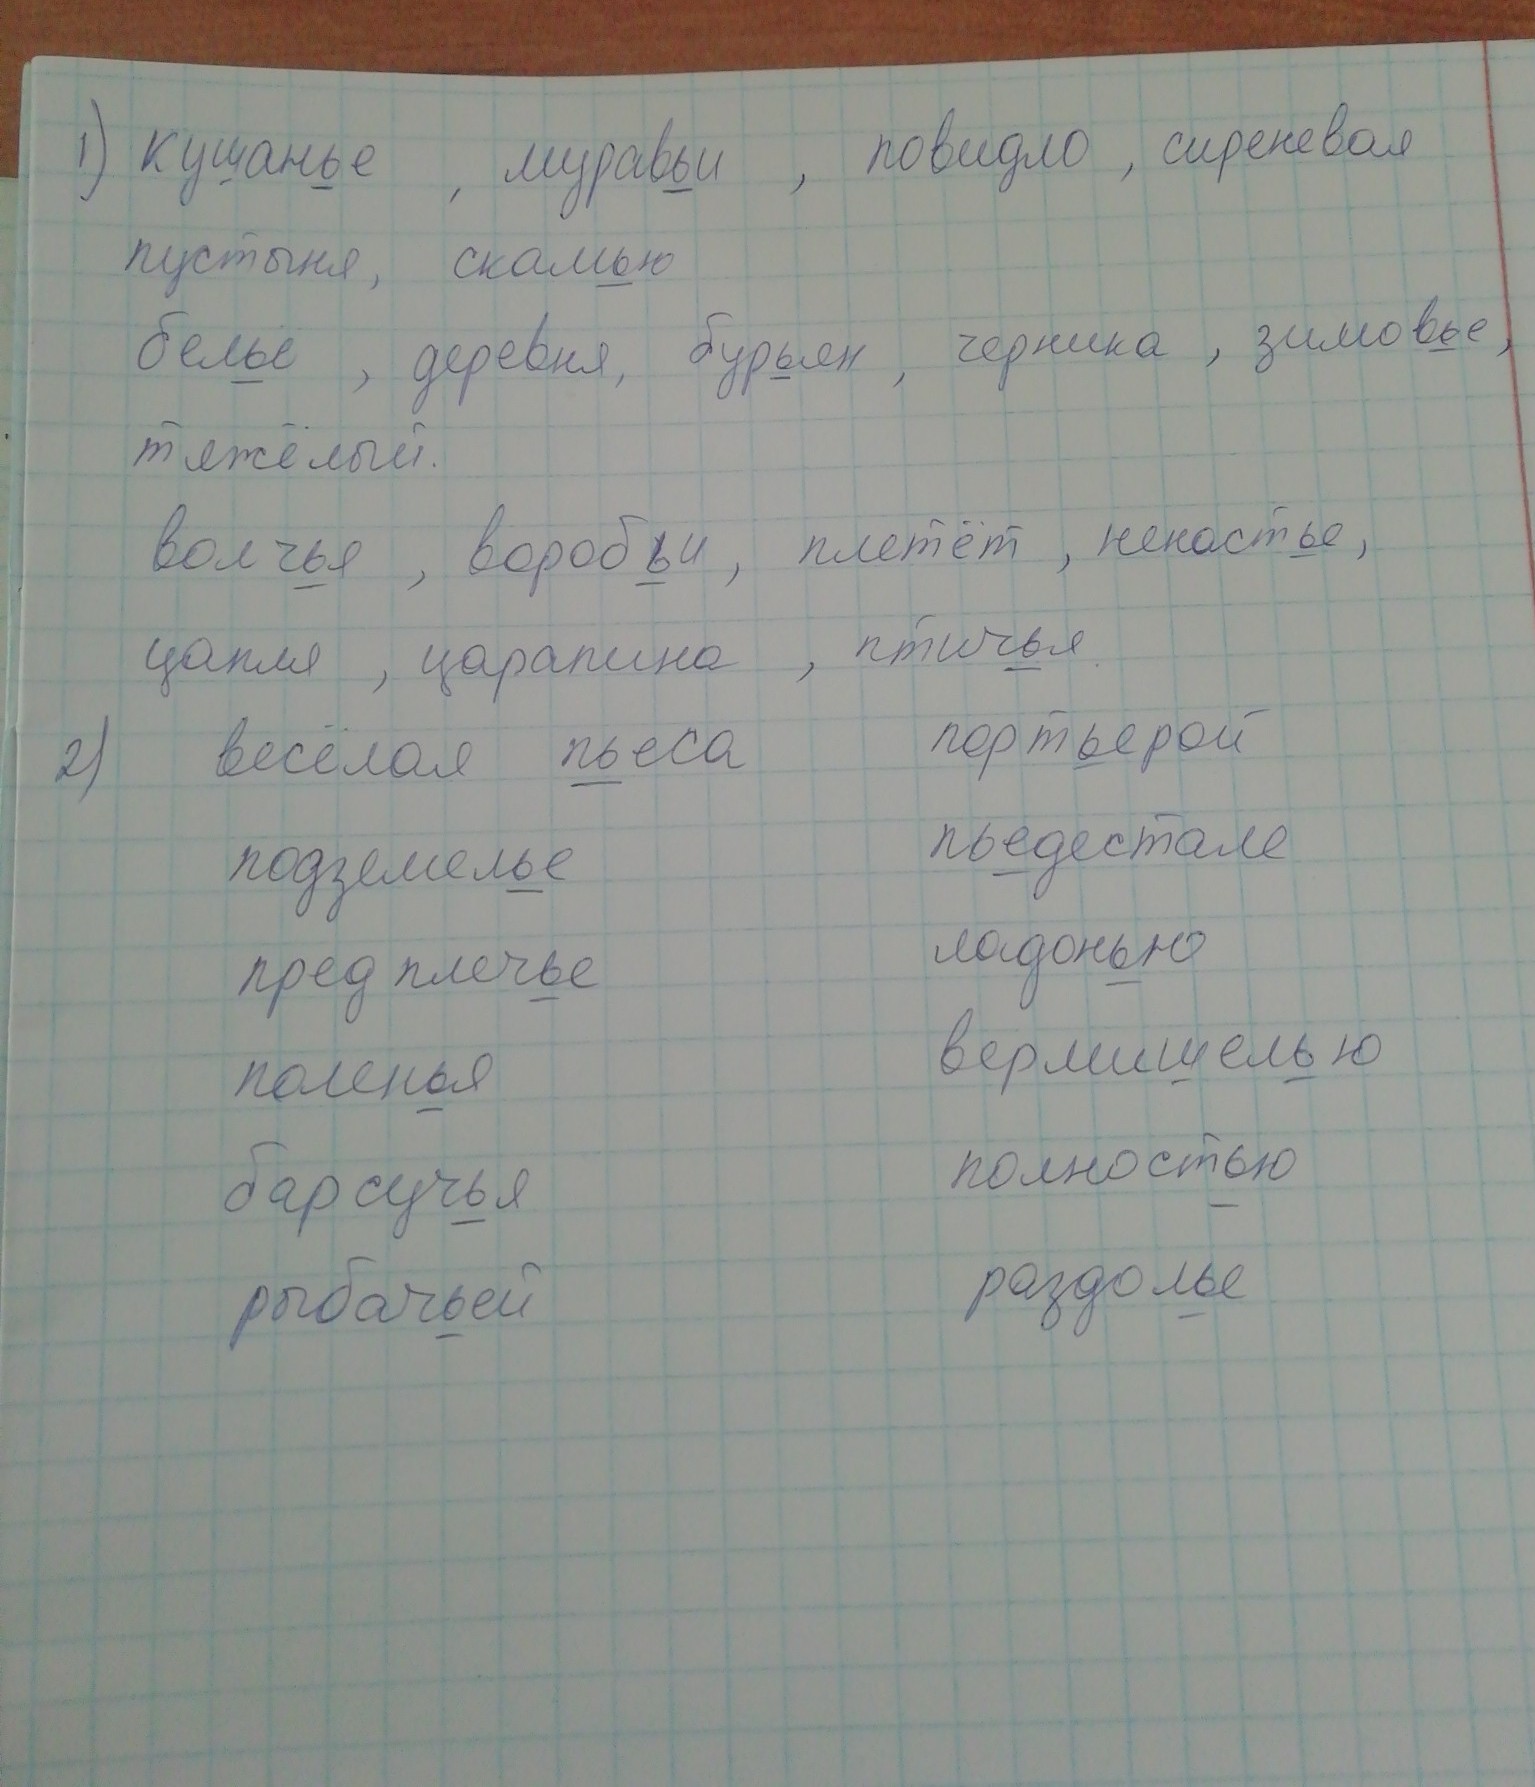 1) кушанье , муравьи , повидло , сиреневая
пустыня, скамью
белье , деревня, бурьян , черника , зимовье,
тяжёлый.
волчья , воробьи , плетёт , ненастье,
цапля , царапина , птичья.
2) весёлая пьеса портьерой
подземелье пьедестале
предплечье ладонью
поленья вермишелью
барсучья полностью
рыбачьей раздолье